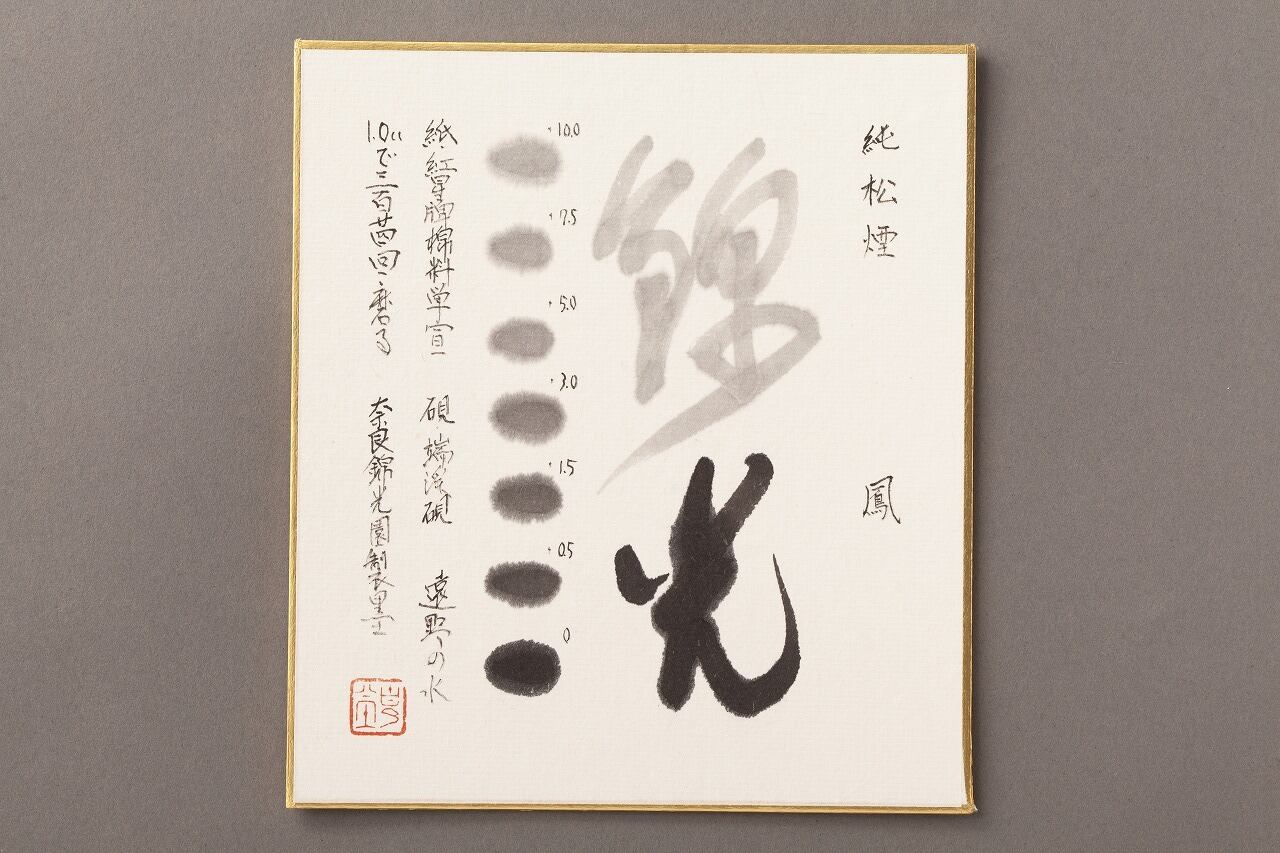 純松煙 鳳
錦光
10.0
7.5
5.0
3.0
1.5
0.5
0
紙・紅星牌棉料単宣 硯・端渓硯 遠野の水
1.0ccで三百廿四回磨る 奈良錦光園製墨